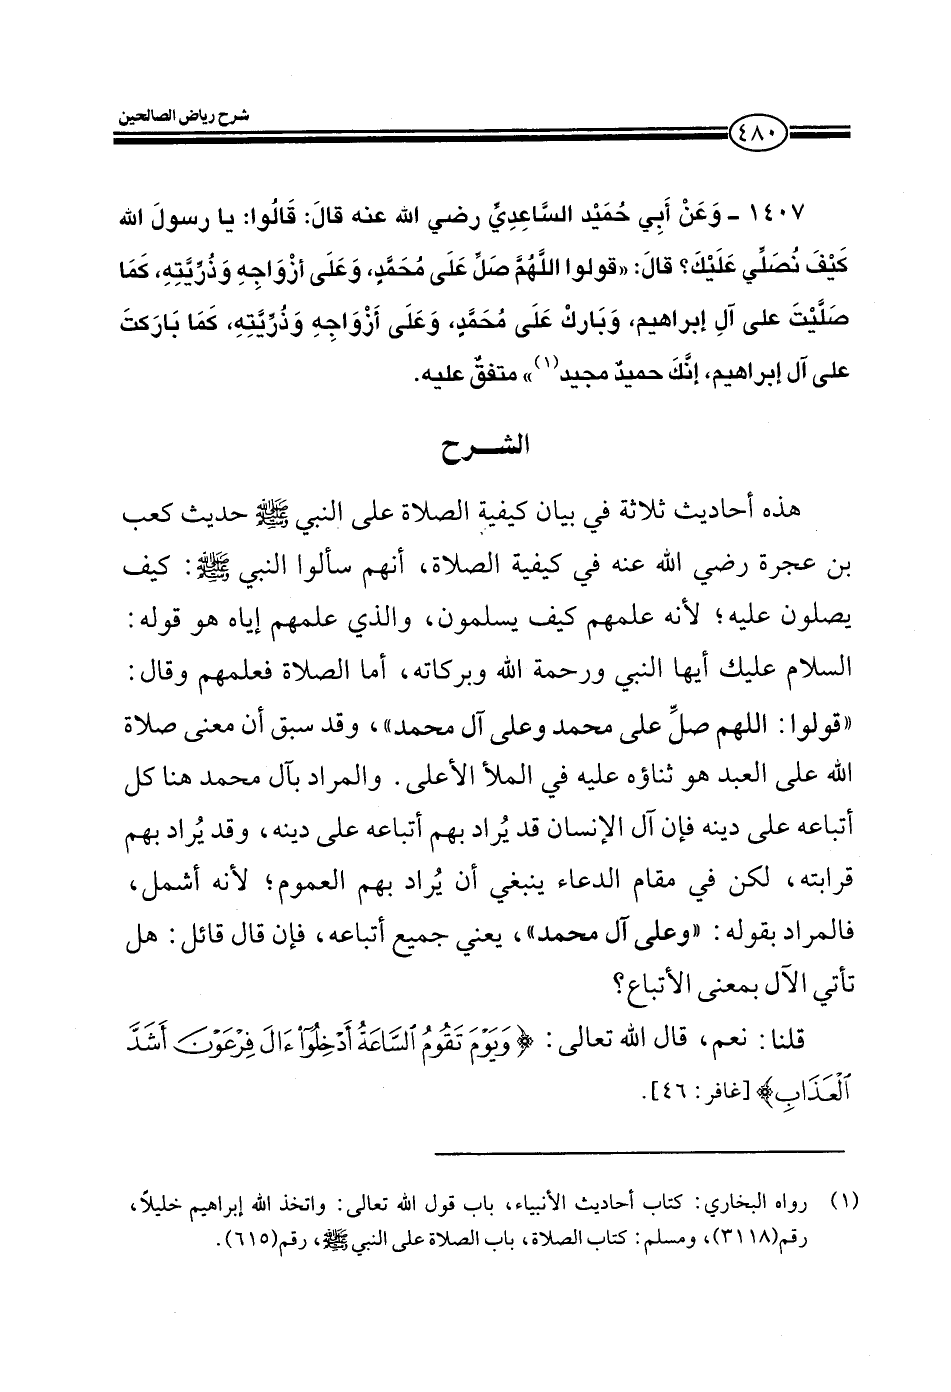 شرح رياض الصالحين
٤٨٠
١٤٠٧ - وَعَنْ أَبِي حُمَيْدٍ السَّاعِدِيِّ رضي الله عنه قالَ: قَالُوا: يا رسولَ الله
كَيْفَ نُصَلِّي عَلَيْكَ؟ قالَ: «قولوا اللَّهُمَّ صَلِّ عَلَى مُحَمَّدٍ، وَعَلَى أزْوَاجِهِ وَذُرِّيَّتِهِ، كَمَا
صَلَّيْتَ على آلِ إبراهيم، وَبَارِكْ عَلَى مُحَمَّدٍ، وَعَلَى أَزْوَاجِهِ وَذُرِّيَّتِهِ، كَمَا بَارَكتَ
على آل إبراهيم، إنَّكَ حميدٌ مجيد(١)» متفقٌ عليه.
الشـــرح
هذه أحاديث ثلاثة في بيان كيفية الصلاة على النبي ﷺ حديث كعب
بن عجرة رضي الله عنه في كيفية الصلاة، أنهم سألوا النبي ﷺ: كيف
يصلون عليه؛ لأنه علمهم كيف يسلمون، والذي علمهم إياه هو قوله:
السلام عليك أيها النبي ورحمة الله وبركاته، أما الصلاة فعلمهم وقال:
«قولوا: اللهم صلِّ على محمد وعلى آل محمد»، وقد سبق أن معنى صلاة
الله على العبد هو ثناؤه عليه في الملأ الأعلى. والمراد بآل محمد هنا كل
أتباعه على دينه فإن آل الإنسان قد يُراد بهم أتباعه على دينه، وقد يُراد بهم
قرابته، لكن في مقام الدعاء ينبغي أن يُراد بهم العموم؛ لأنه أشمل،
فالمراد بقوله: «وعلى آل محمد»، يعني جميع أتباعه، فإن قال قائل: هل
تأتي الآل بمعنى الأتباع؟
قلنا: نعم، قال الله تعالى: ﴿وَيَوْمَ تَقُومُ ٱلسَّاعَةُ أَدْخِلُوٓا۟ ءَالَ فِرْعَوْنَ أَشَدَّ
ٱلْعَذَابِ﴾ [غافر: ٤٦].
(١) رواه البخاري: كتاب أحاديث الأنبياء، باب قول الله تعالى: واتخذ الله إبراهيم خليلاً،
رقم(٣١١٨)، ومسلم: كتاب الصلاة، باب الصلاة على النبي ﷺ، رقم(٦١٥).